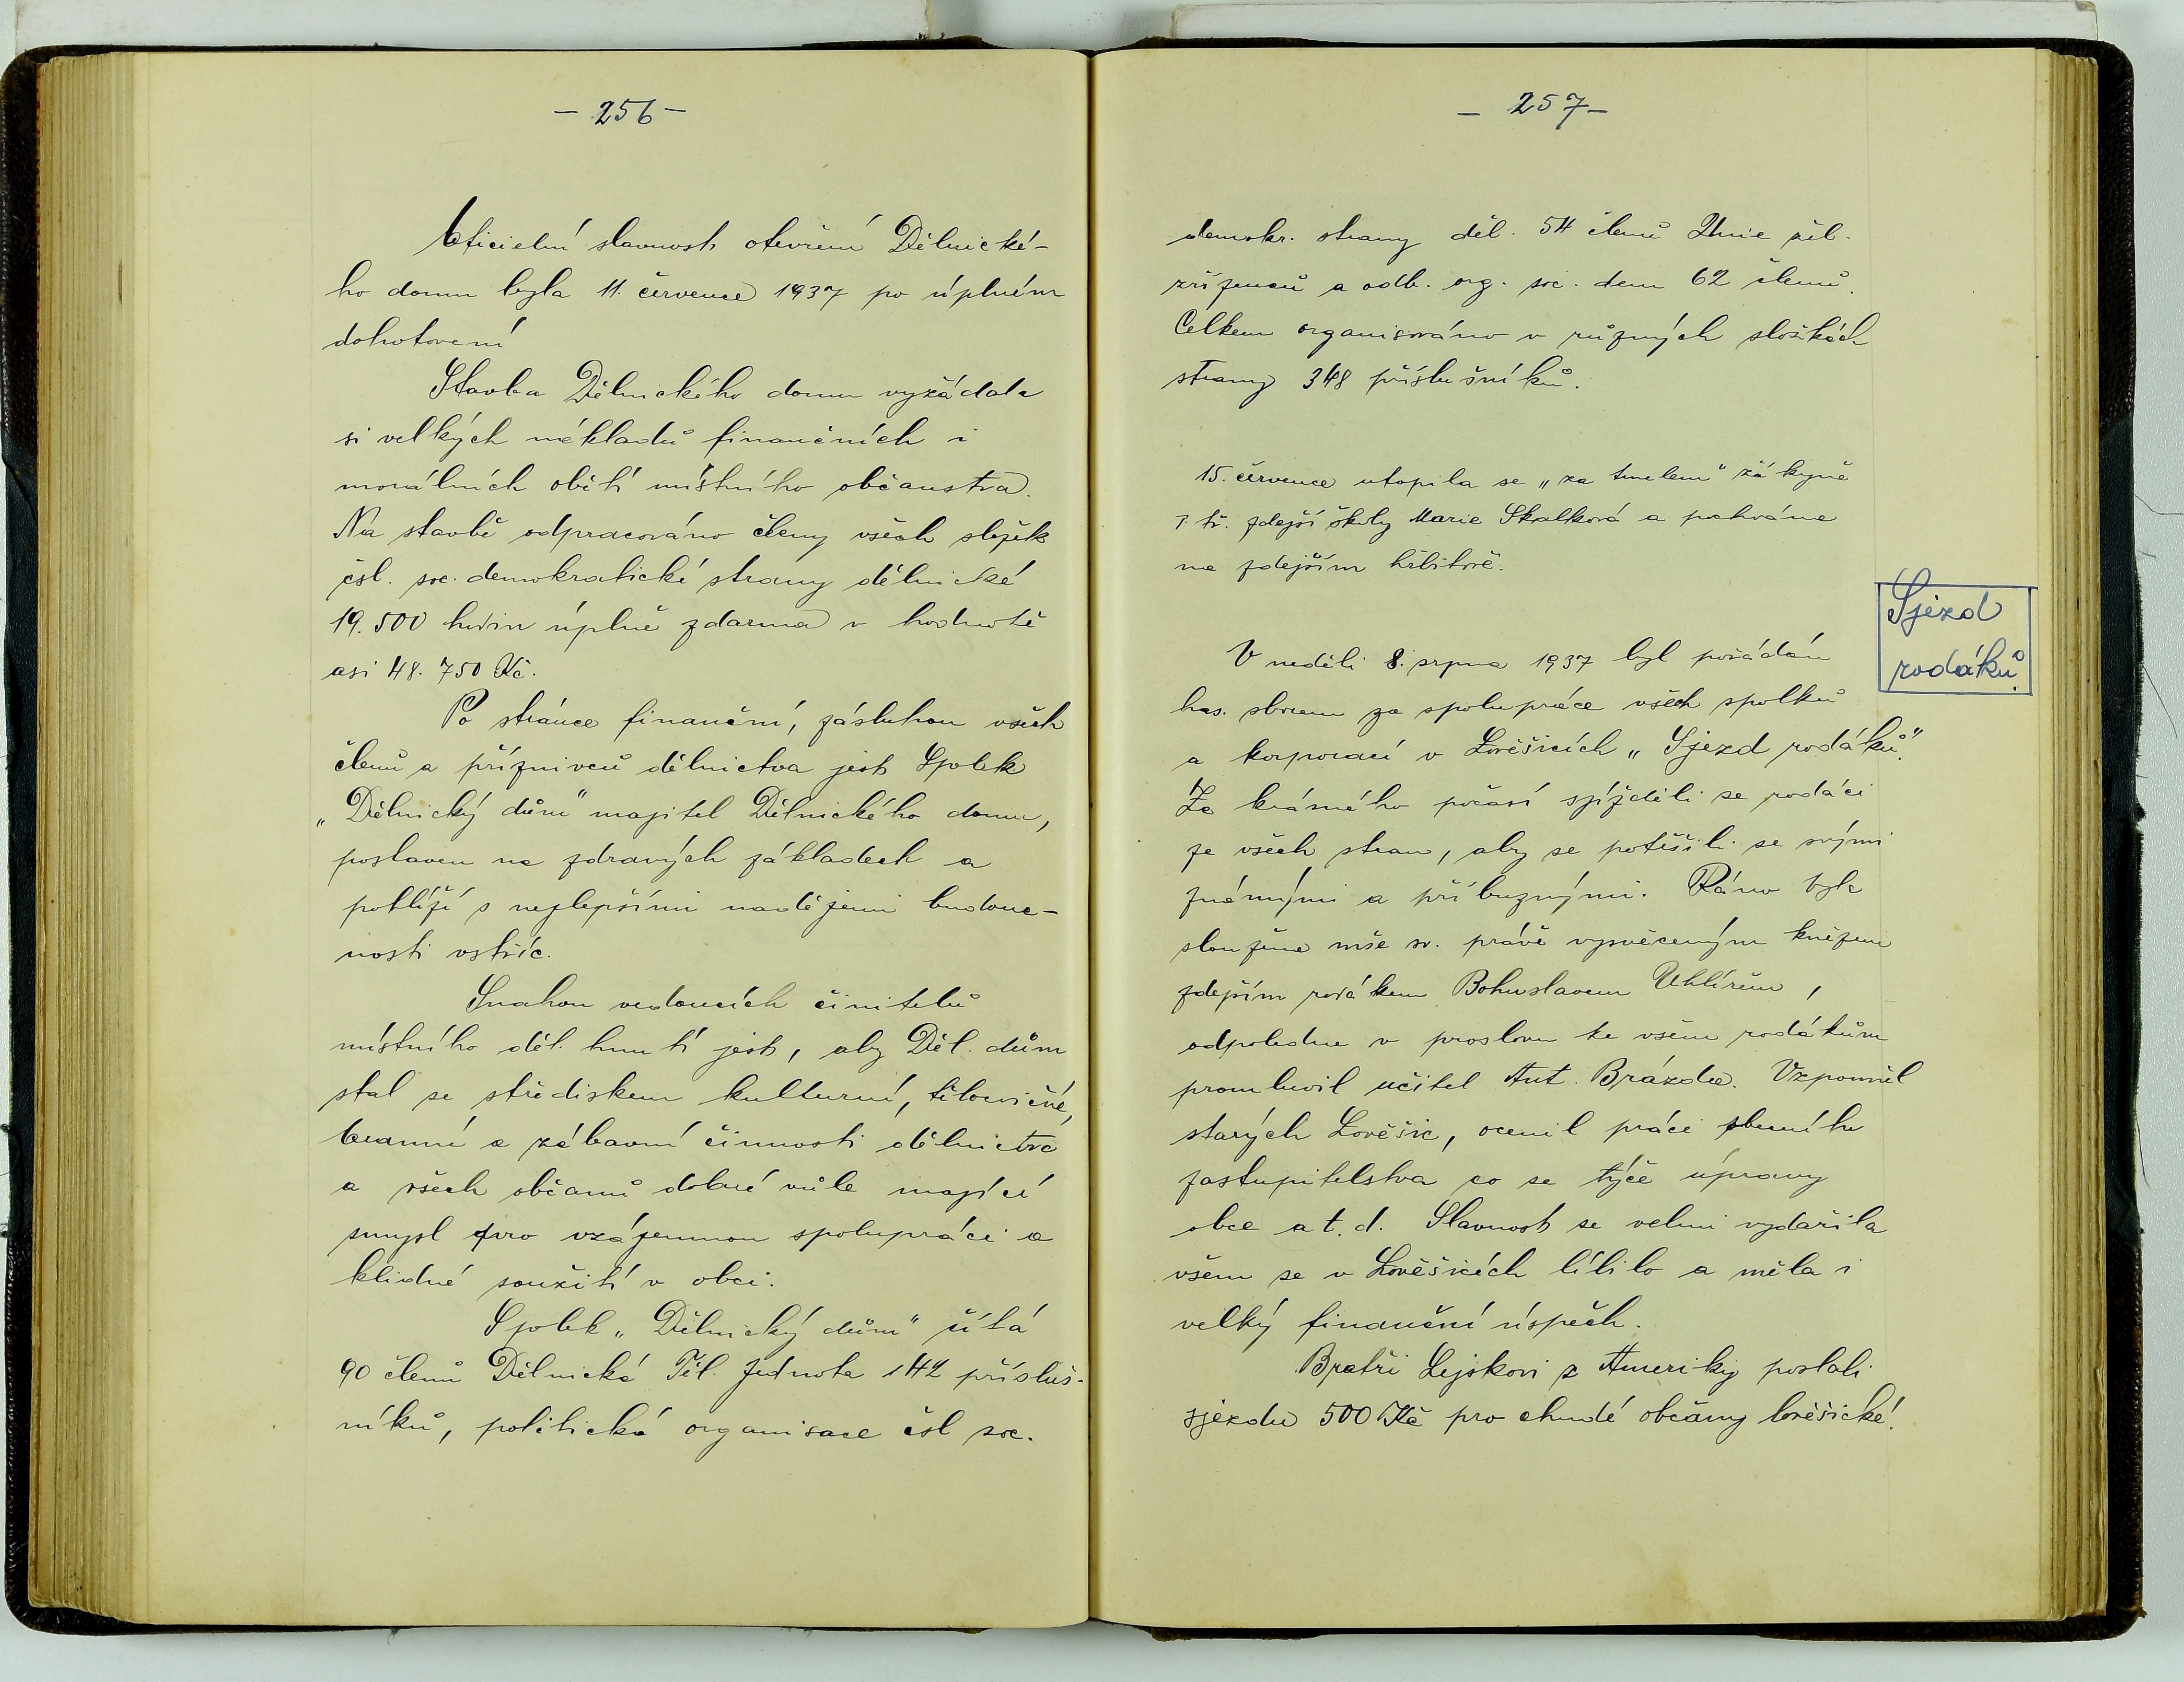 - 256 -
Oficielní slavnost otevření Dělnické-
ho domu byla 11. července 1937 po úplném
dohotovení
Stavba Dělnického domu vyžádala
si velkých nákladů finančních i
morálních obětí místního občanstva.
Na stavbě odpracováno členy všech složek
čsl. soc. demokratické strany dělnické
19.500 hodin úplně zdarma v hodnotě
asi 48.750 Kč.
Po stránce finanční, zásluhou všech
členů a příznivců dělnictva jest Spolek
„Dělnický dům" majitel Dělnického domu,
postaven na zdravých základech a
pohlíží s nejlepšími nadějemi budouc-
nosti vstříc.
Snahou vedoucích činitelů
místního děl. hnutí jest, aby Děl. dům
stal se střediskem kulturní, tělocvičné,
branné a zábavní činnosti dělnictva
a všech občanů dobré vůle mající
smysl pro vzájemnou spolupráci a
klidné soužití v obci.
Spolek „Dělnický dům" čítá
90 členů Dělnická Těl. Jednota 142 přísluš-
níků, politická organisace čsl soc.
- 257 -
demokr. strany děl. 54 členů Unie žel.
zřízenců a odb. org. soc. dem 62 členů.
Celkem organisováno v různých složkách
strany 348 příslušníků.
15. července utopila se „za tmelem" žákyně
tř. zdejší školy Marie Skalková a pochována
na zdejším hřbitově.
Sjezd
rodáků.
V neděli 8. srpna 1937 byl pořádán
has. sborem za spolupráce všech spolků
a korporací v Lověšicích „Sjezd rodáků."
Za krásného počasí sjížděli se rodáci
ze všech stran, aby se potěšili se svými
známými a příbuznými. Ráno byla
sloužena mše sv. právě vysvěceným knězem
zdejším rodákem Bohuslavem Uhlířem,
odpoledne v proslovu ke všem rodákům
promluvil učitel Ant. Brázda. Vzpomněl
starých Lověšic, ocenil práci obecního
zastupitelstva co se týče úpravy
obce a t. d. Slavnost se velmi vydařila
všem se v Lověšicích líbilo a měla i
velký finanční úspěch.
Bratři Lejskovi z Ameriky poslali
sjezdu 500 Kč pro chudé občany lověšické!